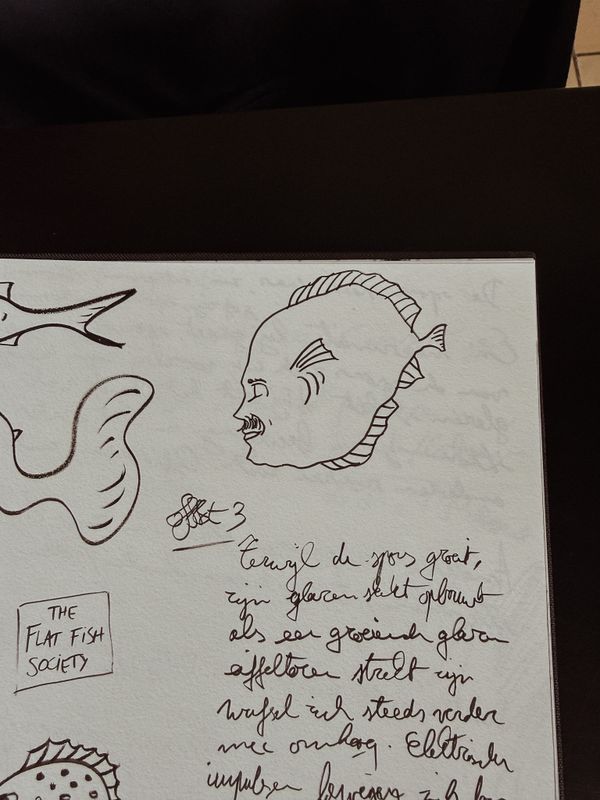 3
Terwijl de spons groeit,
zijn glazen skelet opbouwt
als een groeiende glazen
eiffeltoren strekt zijn
weefsel zich steeds verder
mee omhoog. Elektrische
impulsen bewegen zich
THE
FLAT FISH
SOCIETY